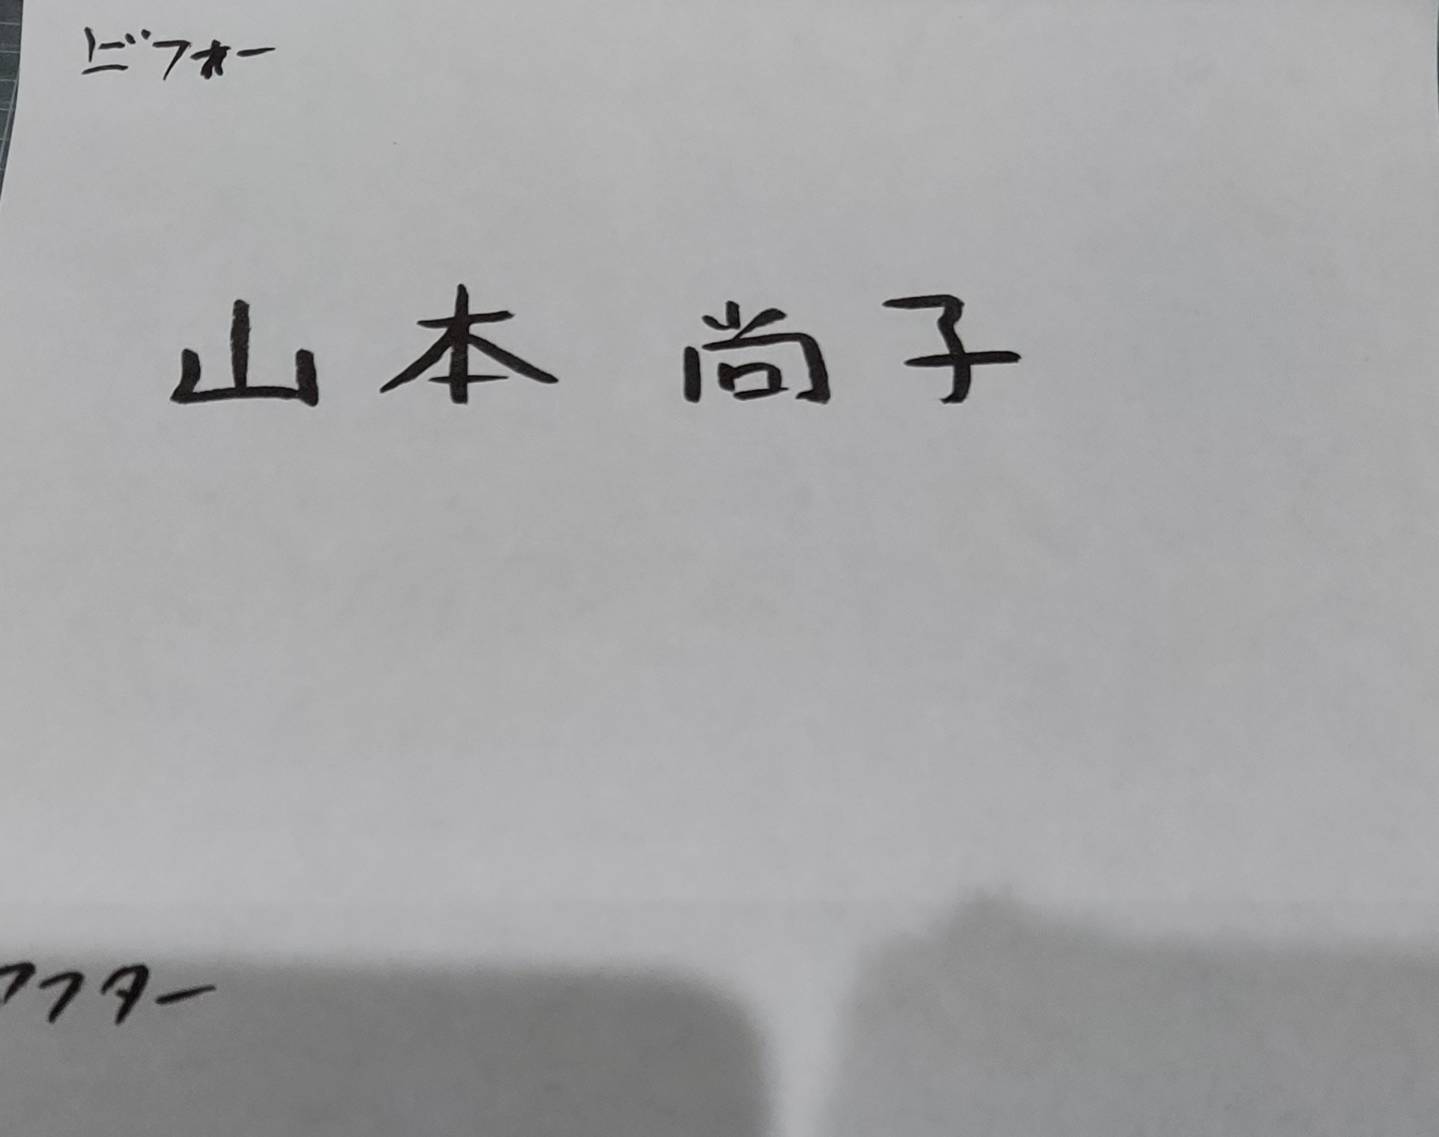 ビフォー
山本 尚子
アフター